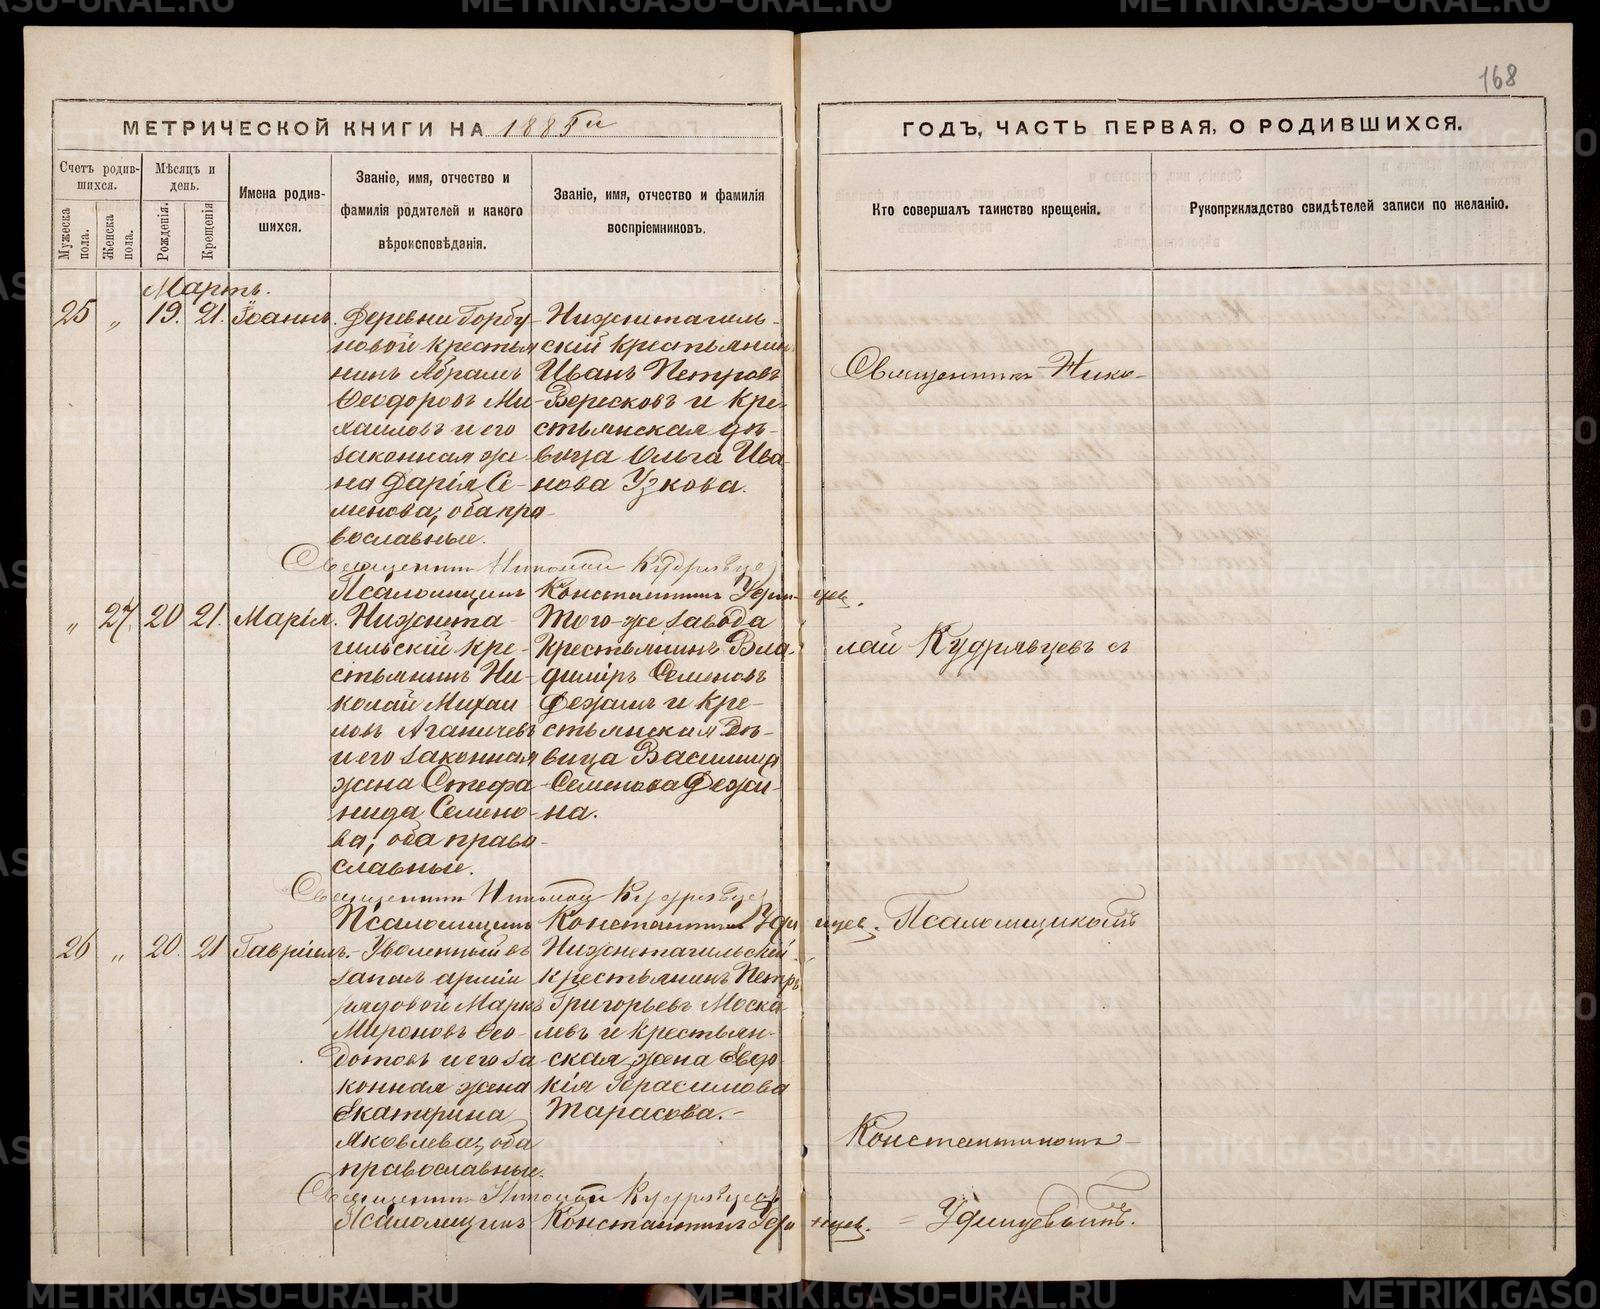 168
МЕТРИЧЕСКОЙ КНИГИ НА 1885 ГОДЪ, ЧАСТЬ ПЕРВАЯ, О РОДИВШИХСЯ.
Счетъ родив-
шихся.
Мужеска
пола.
Женска
пола.
Мѣсяцъ и
день.
Рожденія.
Крещенія
Имена родив-
шихся.
Званіе, имя, отчество и
фамилія родителей и какого
вѣроисповѣданія.
Званіе, имя, отчество и фамилія
воспріемниковъ.
Кто совершалъ таинство крещенія.
Рукоприкладство свидѣтелей записи по желанію.
Мартъ.
25 „ 19. 21. Іоаннъ.
Деревни Горбу-
новой крестья
нинъ Абрамъ
Ѳеодоровъ Ми-
хаиловъ и его
законная же-
на Дарія Се-
менова; оба пра-
вославные.
Нижнетагиль-
скій крестьянин
Иванъ Петровъ
Вересковъ и кре-
стьянская дѣ-
вица Ольга Ива-
нова Узкова.
Священник Николай Кудрявцев
Псаломщикъ Константинъ Удинцев.
„ 27. 20 21. Марія.
Нижнета-
гильскій кре-
стьянинъ Ни-
колай Михаи
ловъ Аганичевъ
и его законная
жена Стефа-
нида Семено-
ва; оба право-
славные.
Того-же завода
крестьянинъ Вла-
димiръ Семеновъ
и кре-
стьянская дѣ-
вица Василиса
Семенова
на.
Священник Николай Кудрявцев
Псаломщикъ Константинъ Удинцев.
26 „ 20. 21 Гавріилъ.
Уволенный въ
запасъ арміи
рядовой Марко
Мироновъ Ѳео-
дотовъ и его за
конная жена
Екатерина
Яковлева; оба
православные.
Нижнетагильскій
крестьянинъ Петръ
Григорьевъ Моска
левъ и крестьян-
ская жена Евдо-
кія Герасимова
Тарасова.
Священник Николай Кудрявцев
Псаломщикъ Константинъ Удинцев.
Священникъ Нико-
лай Кудрявцевъ съ
Псаломщикомъ
Константиномъ
= Удинцевымъ.
METRIKI.GASO-URAL.RU